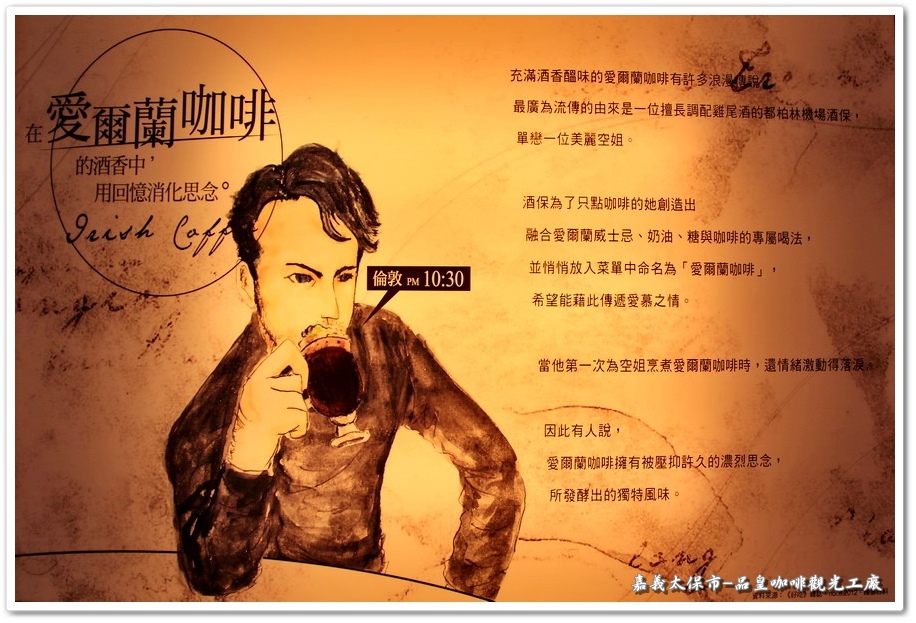 在愛爾蘭咖啡
的酒香中，
用回憶消化思念。
Irish Coff
倫敦 PM 10:30
充滿酒香醞味的愛爾蘭咖啡有許多浪漫傳說，
最廣為流傳的由來是一位擅長調配雞尾酒的都柏林機場酒保，
單戀一位美麗空姐。
酒保為了只點咖啡的她創造出
融合愛爾蘭威士忌、奶油、糖與咖啡的專屬喝法，
並悄悄放入菜單中命名為「愛爾蘭咖啡」，
希望能藉此傳遞愛慕之情。
當他第一次為空姐烹煮愛爾蘭咖啡時，還情緒激動得落淚。
因此有人說，
愛爾蘭咖啡擁有被壓抑許久的濃烈思念，
所發酵出的獨特風味。
嘉義太保市-品皇咖啡觀光工廠